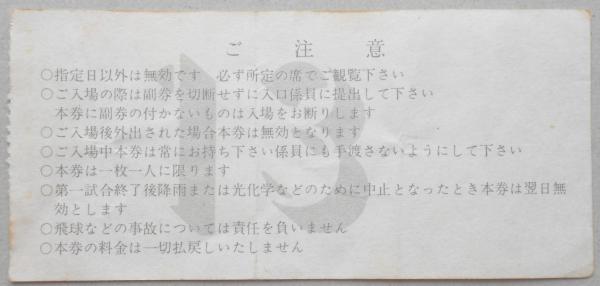 ご注意
○指定日以外は無効です 必ず所定の席でご観覧下さい
○ご入場の際は副券を切断せずに入口係員に提出して下さい
本券に副券の付かないものは入場をお断りします
○ご入場後外出された場合本券は無効となります
○ご入場中本券は常にお持ち下さい係員にも手渡さないようにして下さい
○本券は一枚一人に限ります
○第一試合終了後降雨または光化学などのために中止となったとき本券は翌日無
効とします
○飛球などの事故については責任を負いません
○本券の料金は一切払戻しいたしません
13